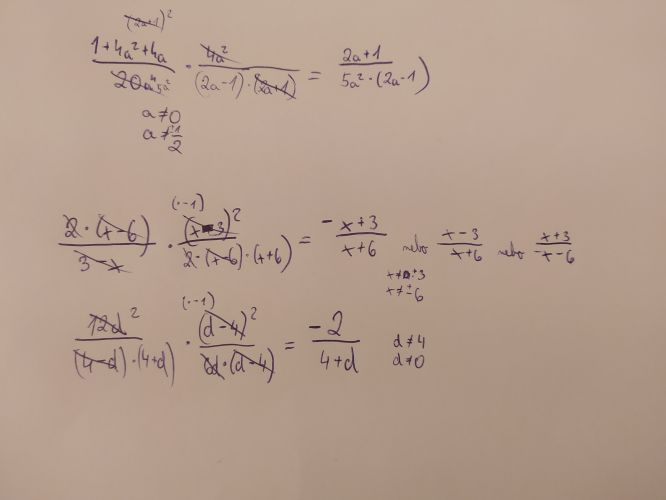 (2a+1)²
1+4a²+4a / 20a⁴ 5a² · 4a² / (2a-1)·(2a+1) = 2a+1 / 5a²·(2a-1)
a≠0
a≠±1/2
(·-1)
2·(x-6) / 3-x · (x-3)² / 2·(x-6)·(x+6) = - x+3 / x+6 nebo x-3 / x+6 nebo x+3 / -x-6
x≠±3
x≠±6
(·-1)
12d² / (4-d)·(4+d) · (d-4)² / 6d·(d-4) = -2 / 4+d d≠4
d≠0